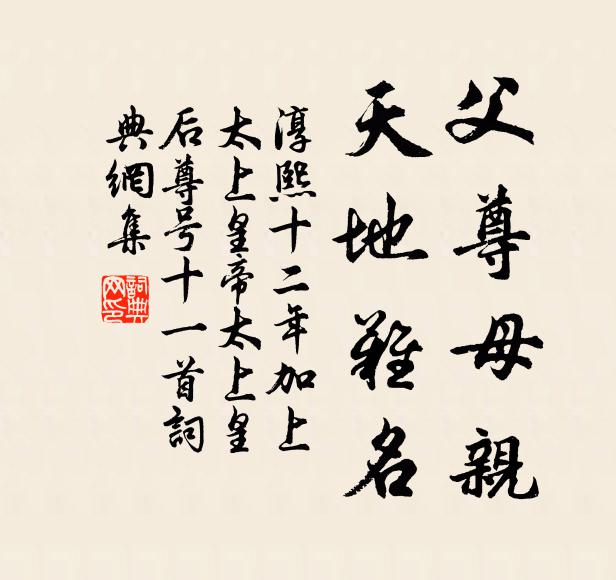 父尊母親
天地難名
淳熙十二年加上
太上皇帝太上皇
后尊号十一首詞
典網集
詞典
网印